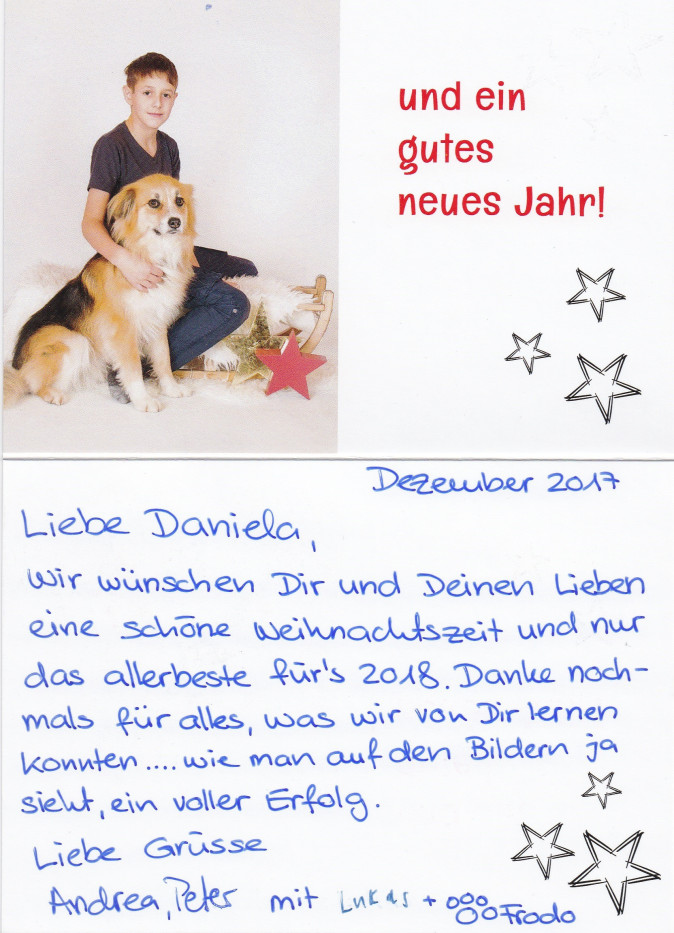 und ein
gutes
neues Jahr!
Dezember 2017
Liebe Daniela,
wir wünschen Dir und Deinen Lieben
eine schöne Weihnachtszeit und nur
das allerbeste für's 2018. Danke noch-
mals für alles, was wir von Dir lernen
konnten .... wie man auf den Bildern ja
sieht, ein voller Erfolg.
Liebe Grüsse
Andrea, Peter mit Lukas + Frodo